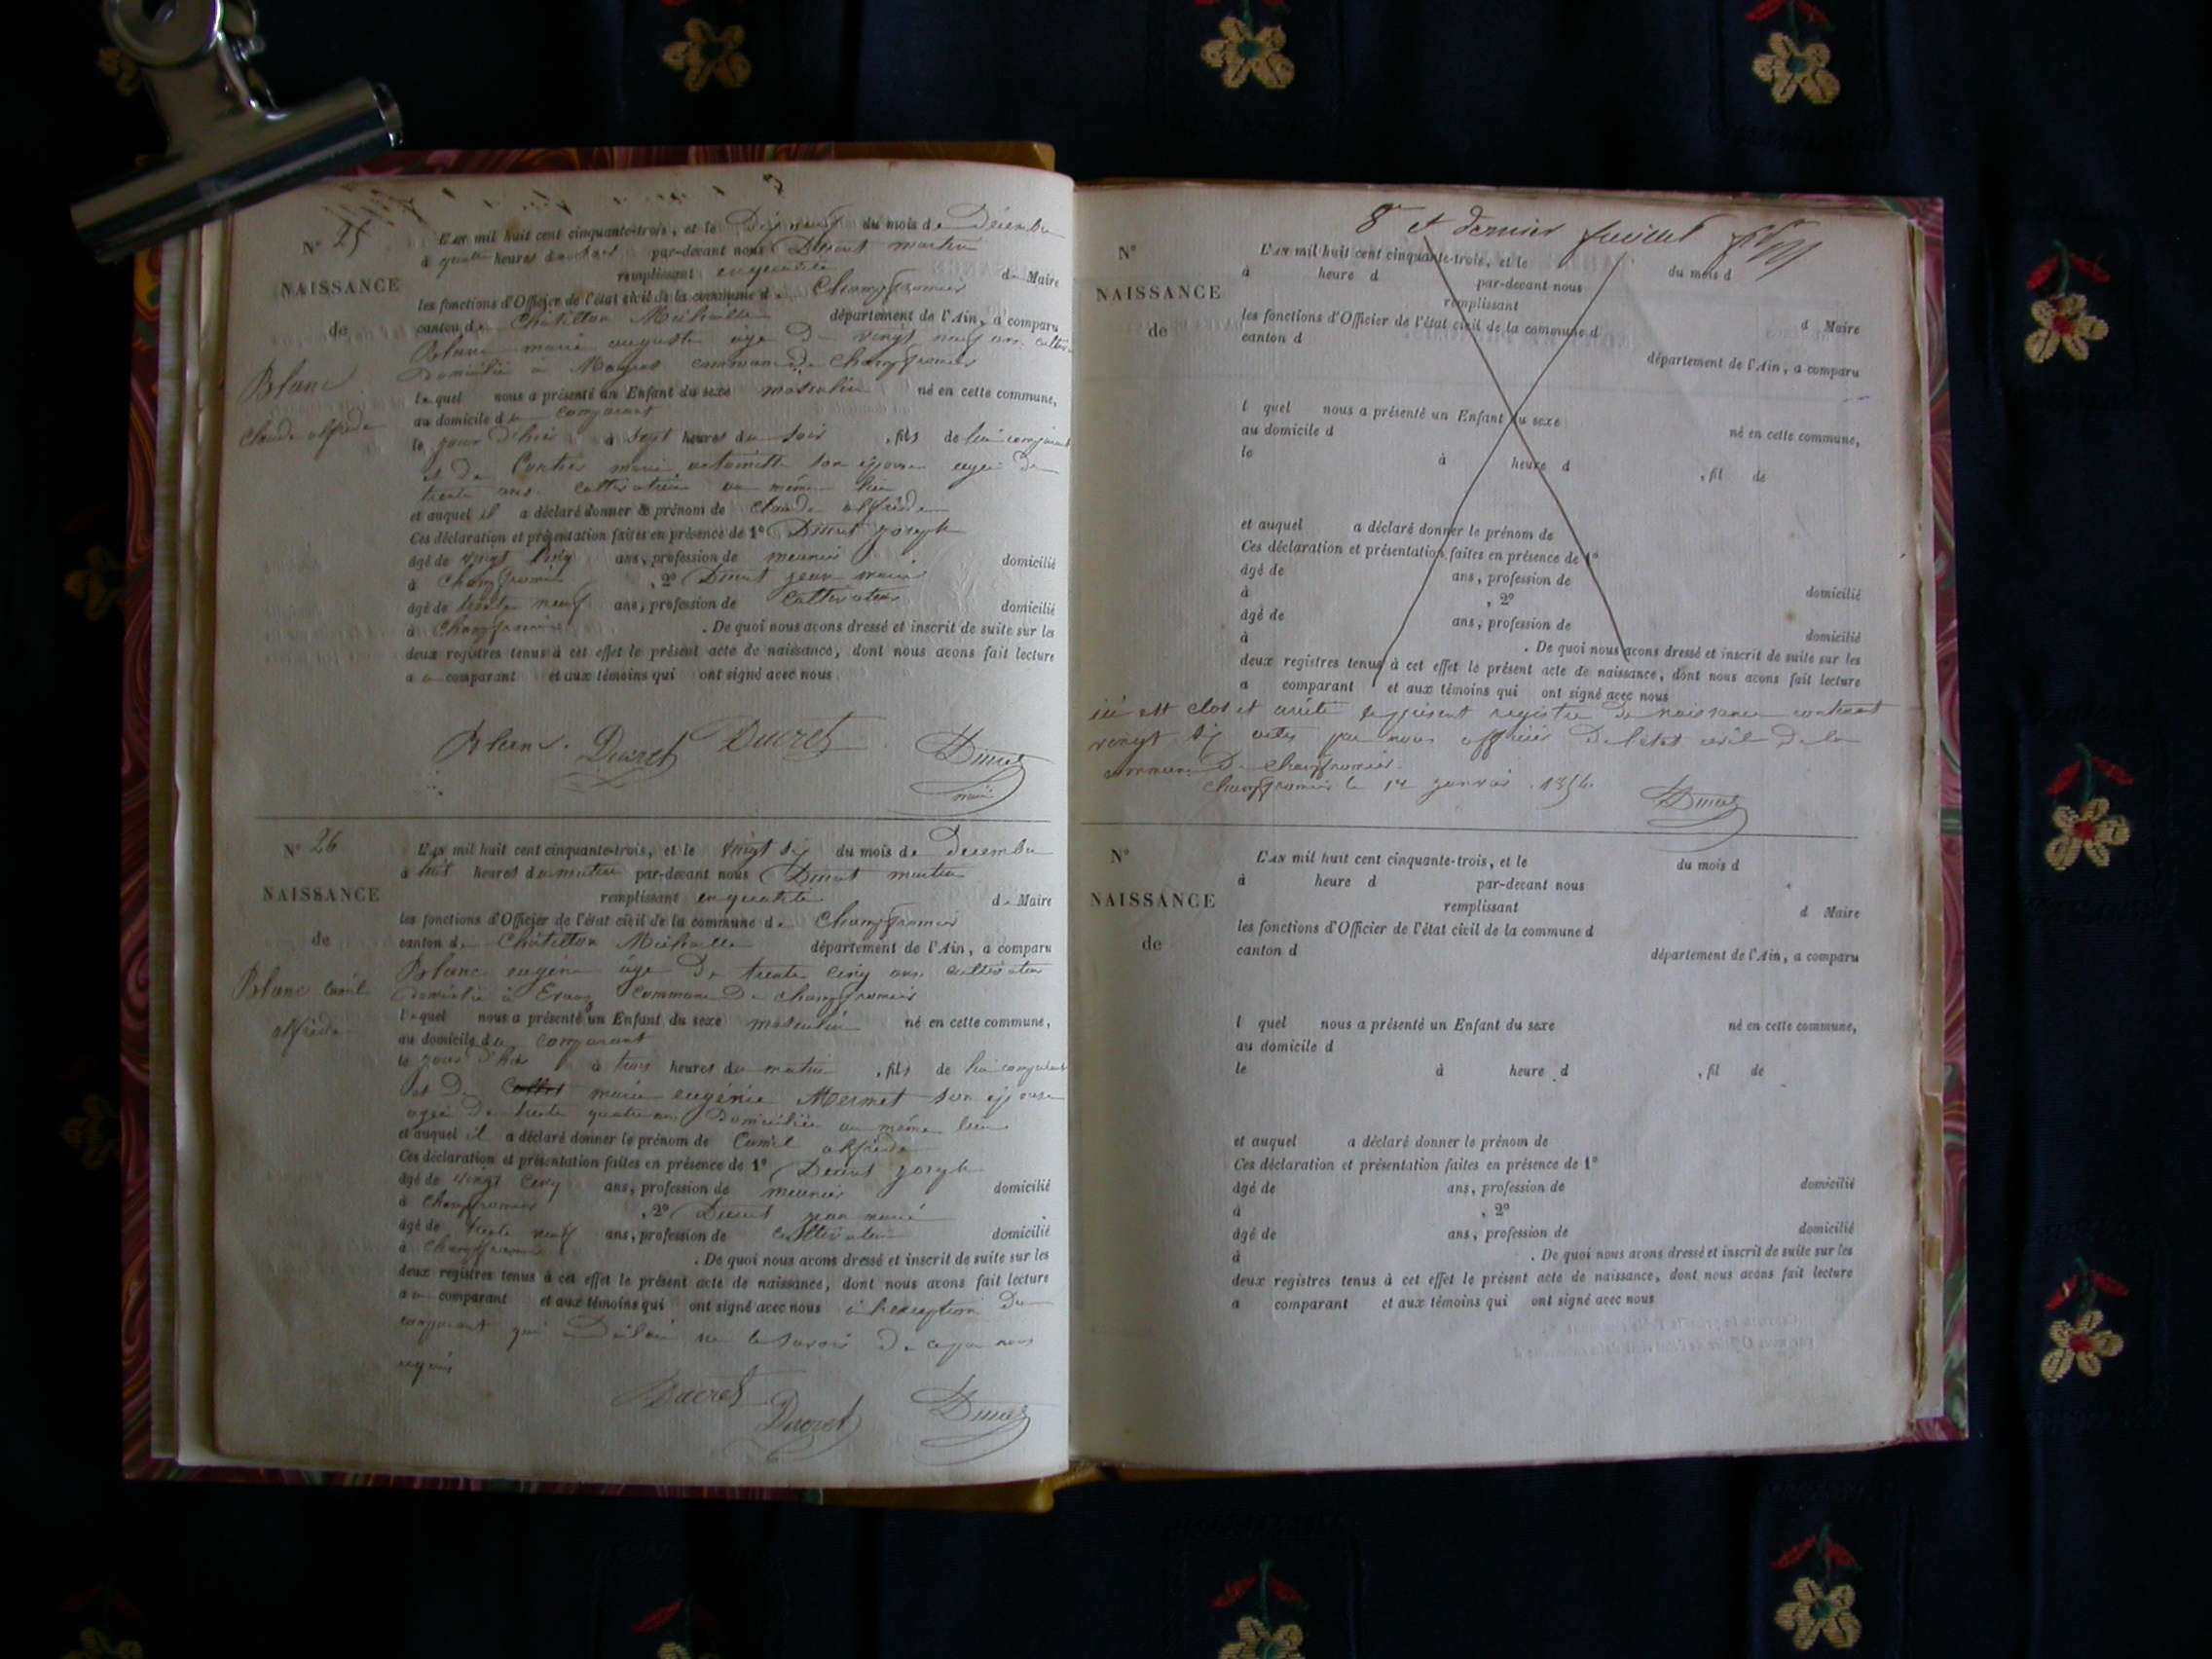 N° 25
NAISSANCE
de
Blanc
Claude alfrède
L'AN mil huit cent cinquante-trois, et le Dix neuf du mois de Décembre
à quatre heures du soir par-devant nous Ducret martin
remplissant en qualité de Maire
les fonctions d'Officier de l'état civil de la commune de Champfromier
canton de Châtillon Michaille département de l'Ain, a comparu
Blanc marie auguste âgé de vingt neuf ans
Domicilié à commune de Champfromier
lequel nous a présenté un Enfant du sexe masculin né en cette commune,
au domicile du comparant
le jour d'hier à sept heures du soir, fils de lui comparant
et de marie antoinette son épouse agée de
trente ans cultivatrice au même lieu
et auquel il a déclaré donner le prénom de Claude alfrède
Ces déclaration et présentation faites en présence de 1° Ducret joseph
âgé de vingt cinq ans, profession de meunier domicilié
à Champfromier, 2° Ducret jean marie
âgé de trente neuf ans, profession de cultivateur domicilié
à Champfromier. De quoi nous avons dressé et inscrit de suite sur les
deux registres tenus à cet effet le présent acte de naissance, dont nous avons fait lecture
au comparant et aux témoins qui ont signé avec nous
Blanc. Ducret Ducret Ducret
maire
N° 26
NAISSANCE
de
Blanc Camil
alfrède
L'AN mil huit cent cinquante-trois, et le vingt six du mois de Décembre
à huit heures du matin par-devant nous Ducret martin
remplissant en qualité de Maire
les fonctions d'Officier de l'état civil de la commune de Champfromier
canton de Châtillon Michaille département de l'Ain, a comparu
Blanc eugène âgé de trente cinq ans cultivateur
domicilié à commune de Champfromier
lequel nous a présenté un Enfant du sexe masculin né en cette commune,
au domicile du comparant
le jour d'hier à trois heures du matin, fils de lui comparant
et De marie eugénie Mermet son épouse
agée de trente quatre ans Domiciliée au même lieu
et auquel il a déclaré donner le prénom de Camil alfrède
Ces déclaration et présentation faites en présence de 1° Ducret joseph
âgé de vingt cinq ans, profession de meunier domicilié
à Champfromier, 2° Ducret jean marie
âgé de trente neuf ans, profession de cultivateur domicilié
à Champfromier. De quoi nous avons dressé et inscrit de suite sur les
deux registres tenus à cet effet le présent acte de naissance, dont nous avons fait lecture
au comparant et aux témoins qui ont signé avec nous à l'exception du
comparant qui Déclaré ne le savoir De ce par nous
requis
Ducret Ducret Ducret
8e et dernier feuillet
N°
NAISSANCE
de
L'AN mil huit cent cinquante-trois, et le du mois d
à heure d par-devant nous
remplissant d Maire
les fonctions d'Officier de l'état civil de la commune d
canton d département de l'Ain, a comparu
l quel nous a présenté un Enfant du sexe né en cette commune,
au domicile d
le à heure d , fil de
et auquel a déclaré donner le prénom de
Ces déclaration et présentation faites en présence de 1°
âgé de ans, profession de domicilié
à , 2°
âgé de ans, profession de domicilié
à . De quoi nous avons dressé et inscrit de suite sur les
deux registres tenus à cet effet le présent acte de naissance, dont nous avons fait lecture
a comparant et aux témoins qui ont signé avec nous
ici est clos et arrêté le présent registre de naissance contenant
vingt six actes par nous officier De l'état civil de la
commune De Champfromier.
Champfromier le 1er janvier 1854
Ducret
N°
NAISSANCE
de
L'AN mil huit cent cinquante-trois, et le du mois d
à heure d par-devant nous
remplissant d Maire
les fonctions d'Officier de l'état civil de la commune d
canton d département de l'Ain, a comparu
l quel nous a présenté un Enfant du sexe né en cette commune,
au domicile d
le à heure d , fil de
et auquel a déclaré donner le prénom de
Ces déclaration et présentation faites en présence de 1°
âgé de ans, profession de domicilié
à , 2°
âgé de ans, profession de domicilié
à . De quoi nous avons dressé et inscrit de suite sur les
deux registres tenus à cet effet le présent acte de naissance, dont nous avons fait lecture
a comparant et aux témoins qui ont signé avec nous